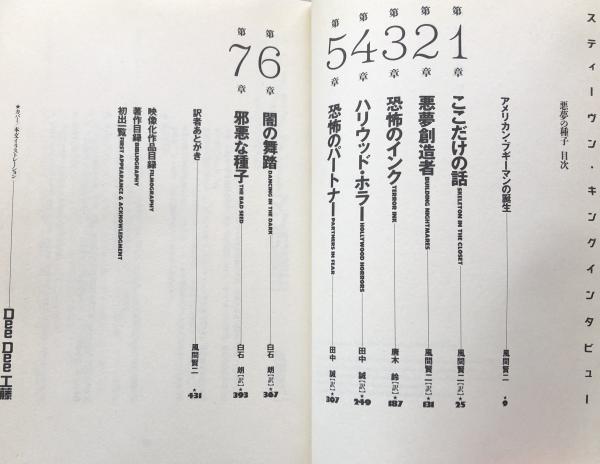 スティーヴン・キングインタビュー
悪夢の種子 目次
アメリカン・ブギーマンの誕生 風間賢二 ★9
第1章 ここだけの話 SKELETON IN THE CLOSET 風間賢二[訳] ★25
第2章 悪夢創造者 BUILDING NIGHTMARES 風間賢二[訳] ★131
第3章 恐怖のインク TERROR INK 唐木 鈴[訳] ★187
第4章 ハリウッド・ホラー HOLLYWOOD HORRORS 田中 誠[訳] ★249
第5章 恐怖のパートナー PARTNERS IN FEAR 田中 誠[訳] ★307
第6章 闇の舞踏 DANCING IN THE DARK 白石 朗[訳] ★367
第7章 邪悪な種子 THE BAD SEED 白石 朗[訳] ★393
訳者あとがき 風間賢二 ★431
映像化作品目録 FILMOGRAPHY
著作目録 BIBLIOGRAPHY
初出一覧 FIRST APPEARANCE & ACKNOWLEDGMENT
★カバー、本文イラストレーション Dee Dee 工藤